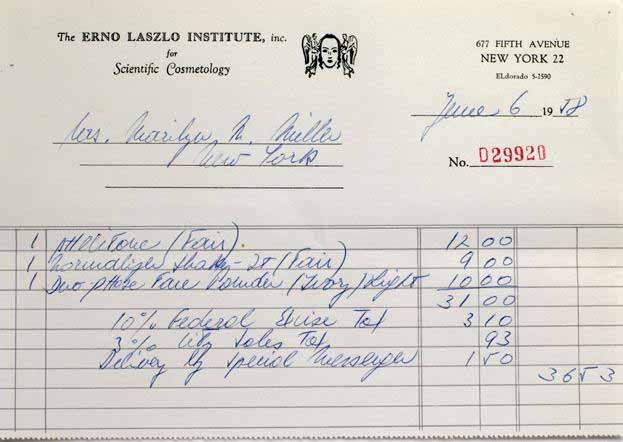 The ERNO LASZLO INSTITUTE, inc.
for
Scientific Cosmetology
677 FIFTH AVENUE
NEW YORK 22
ELdorado 5-1590
June 6 1958
Mrs. Marilyn M. Miller
New York
No. 029920
1 (Fair). 12 00
1 Normalizer Shake-It (Fair) 9 00
1 Duo-phase Face Powder (Ivory) Light 10 00
31 00
10% Federal Excise Tax 3 10
3% City Sales Tax 93
Delivery by special messenger 1 50
36 53